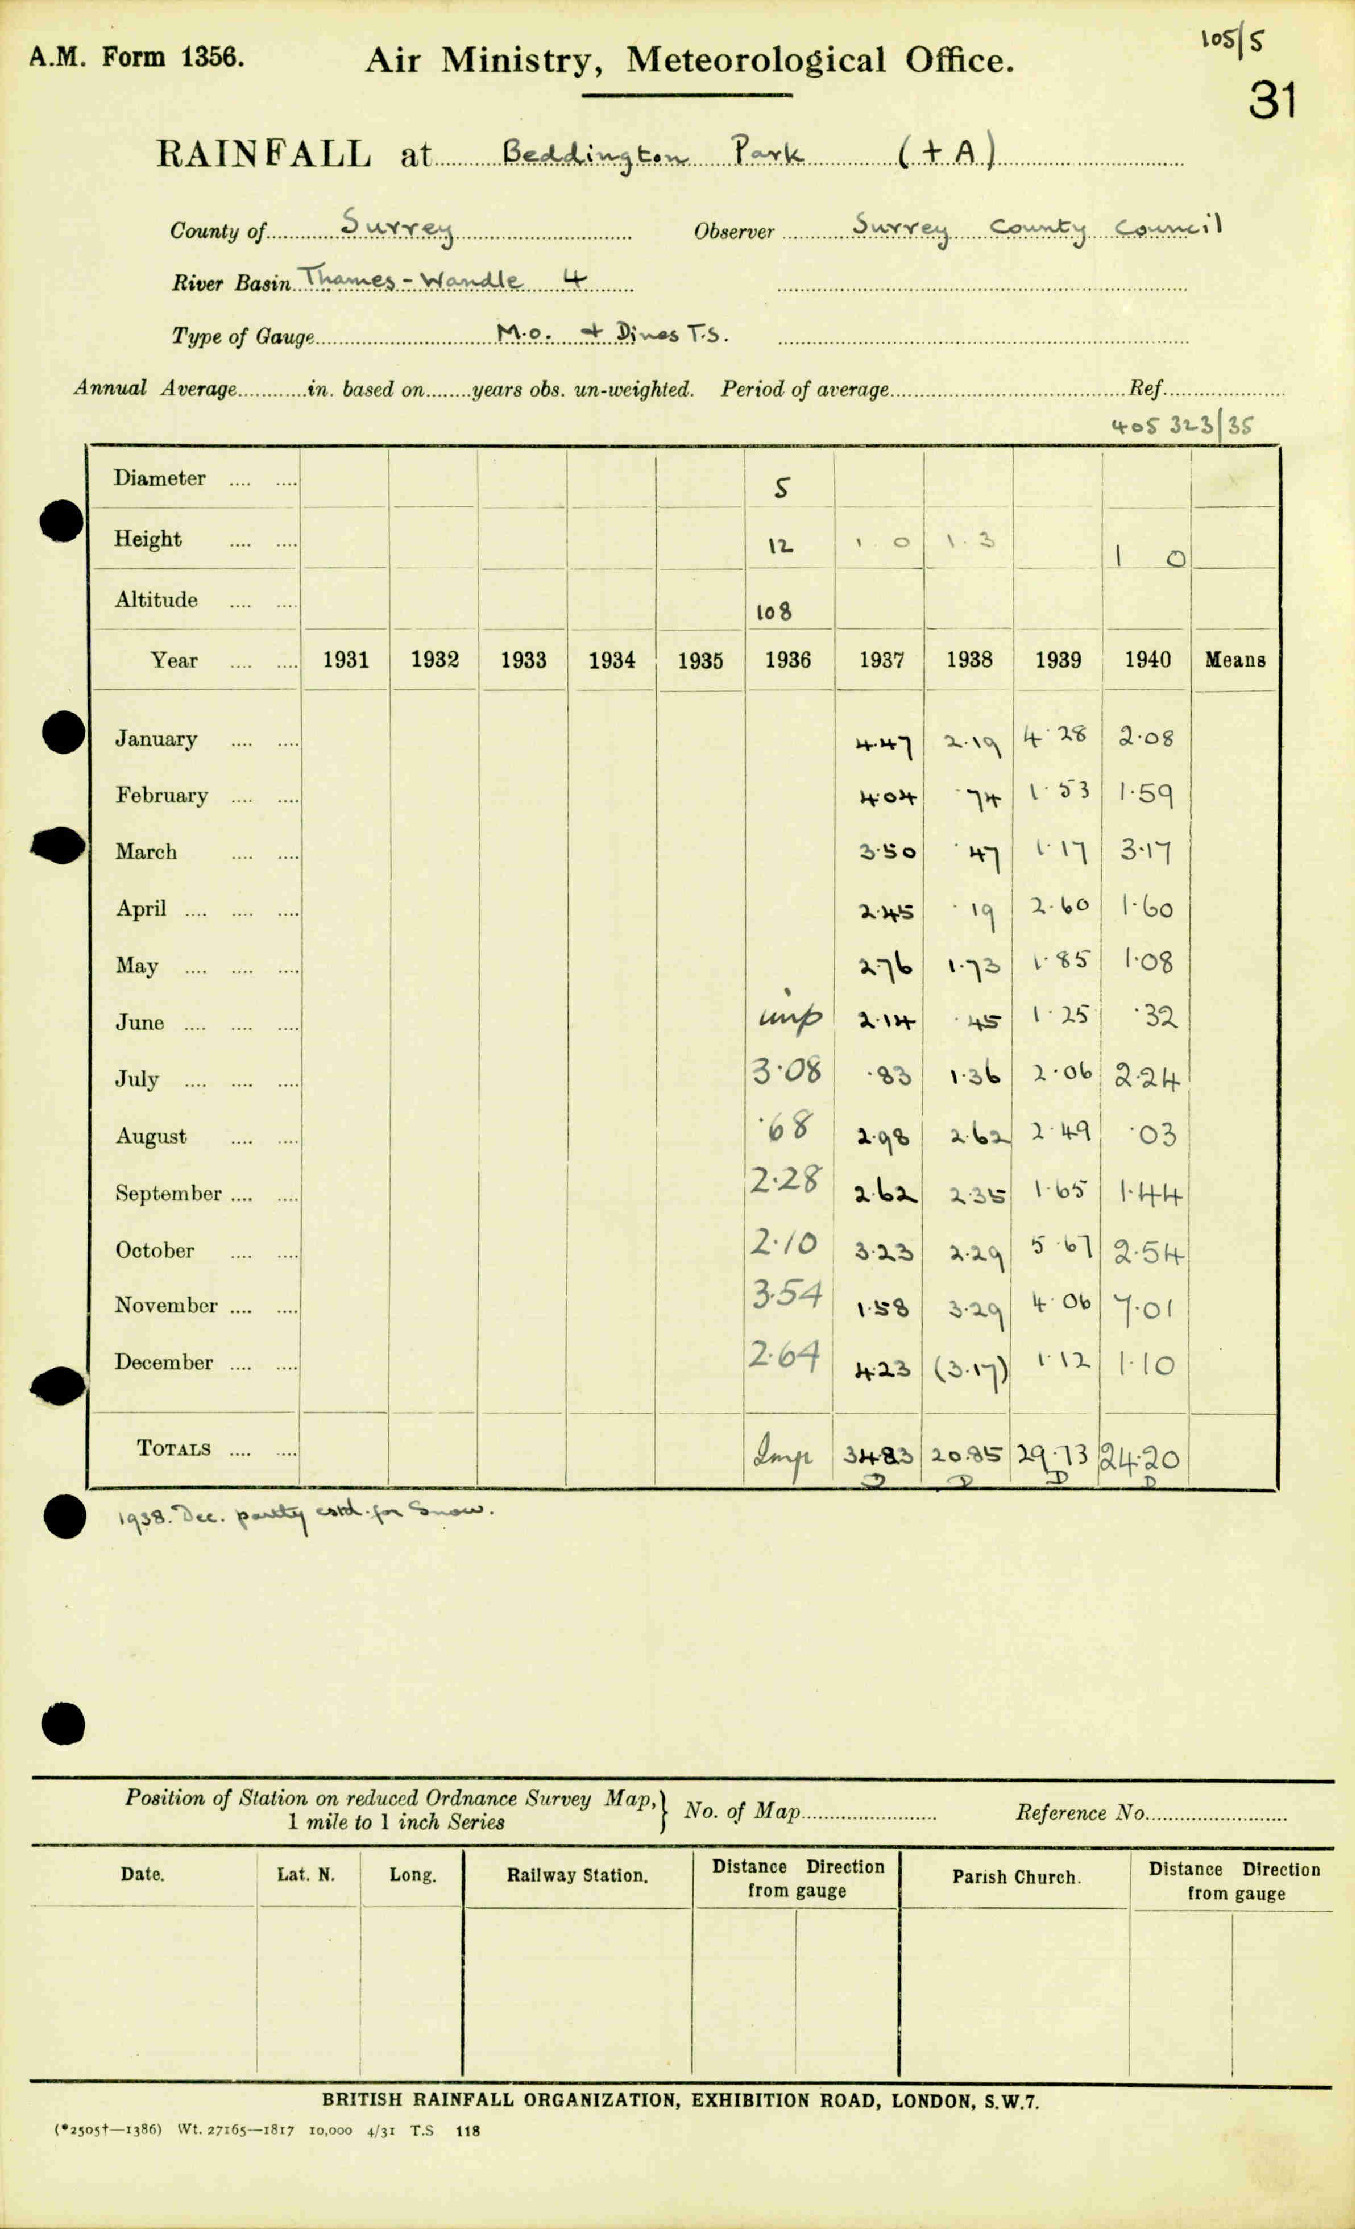 105/5
A.M. Form 1356. Air Ministry, Meteorological Office.
31
RAINFALL at Beddington Park (+ A)
County of Surrey Observer Surrey County Council
River Basin Thames - Wandle 4
Type of Gauge M.O. + Dines T.S.
Annual Average in. based on years obs. un-weighted. Period of average Ref.
405 323/35
Diameter 5
Height 12 1 0 1.3 1 0
Altitude 108
Year 1931 1932 1933 1934 1935 1936 1937 1938 1939 1940 Means
January 4.47 2.19 4.28 2.08
February 4.04 .74 1.53 1.59
March 3.50 .47 1.17 3.17
April 2.45 .19 2.60 1.60
May 2.76 1.73 1.85 1.08
June imp 2.14 .45 1.25 .32
July 3.08 .83 1.36 2.06 2.24
August .68 2.98 2.62 2.49 .03
September 2.28 2.62 2.35 1.65 1.44
October 2.10 3.23 2.29 5.67 2.54
November 3.54 1.58 3.29 4.06 7.01
December 2.64 4.23 (3.17) 1.12 1.10
TOTALS Imp 34.83 20.85 29.73 24.20
D D D D
1938. Dec. partly estd. for Snow.
Position of Station on reduced Ordnance Survey Map, } No. of Map Reference No.
1 mile to 1 inch Series
Date. Lat. N. Long. Railway Station. Distance Direction from gauge Parish Church. Distance Direction from gauge
BRITISH RAINFALL ORGANIZATION, EXHIBITION ROAD, LONDON, S.W.7.
(*2505†—1386) Wt. 27165—1817 10,000 4/31 T.S 118